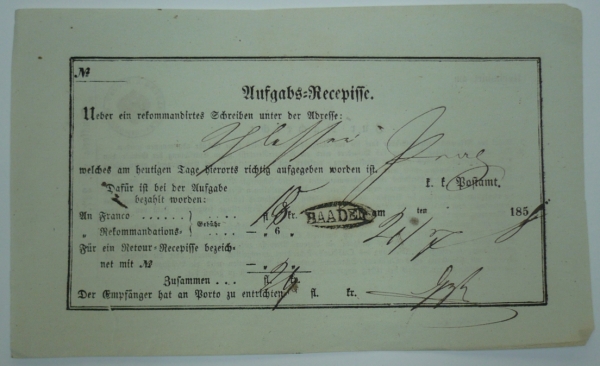 №
Aufgabs-Recepisse.
Ueber ein rekommandirtes Schreiben unter der Adresse:
Prag
welches am heutigen Tage hierorts richtig aufgegeben worden ist.
Dafür ist bei der Aufgabe k. k. Postamt.
bezahlt worden:
An Franco . . . . . . } . . . . fl. kr. BAADEN am ten 185
„ Rekommandations- } Gebühr . . . . — . 6 .
Für ein Retour-Recepisse bezeich-
net mit № — . .
Zusammen . . . fl.
Der Empfänger hat an Porto zu entrichten fl. kr.